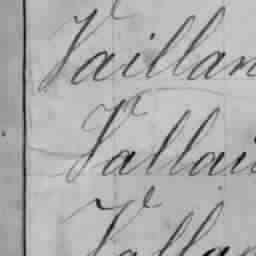 Vaillan
Vallau
Vallan